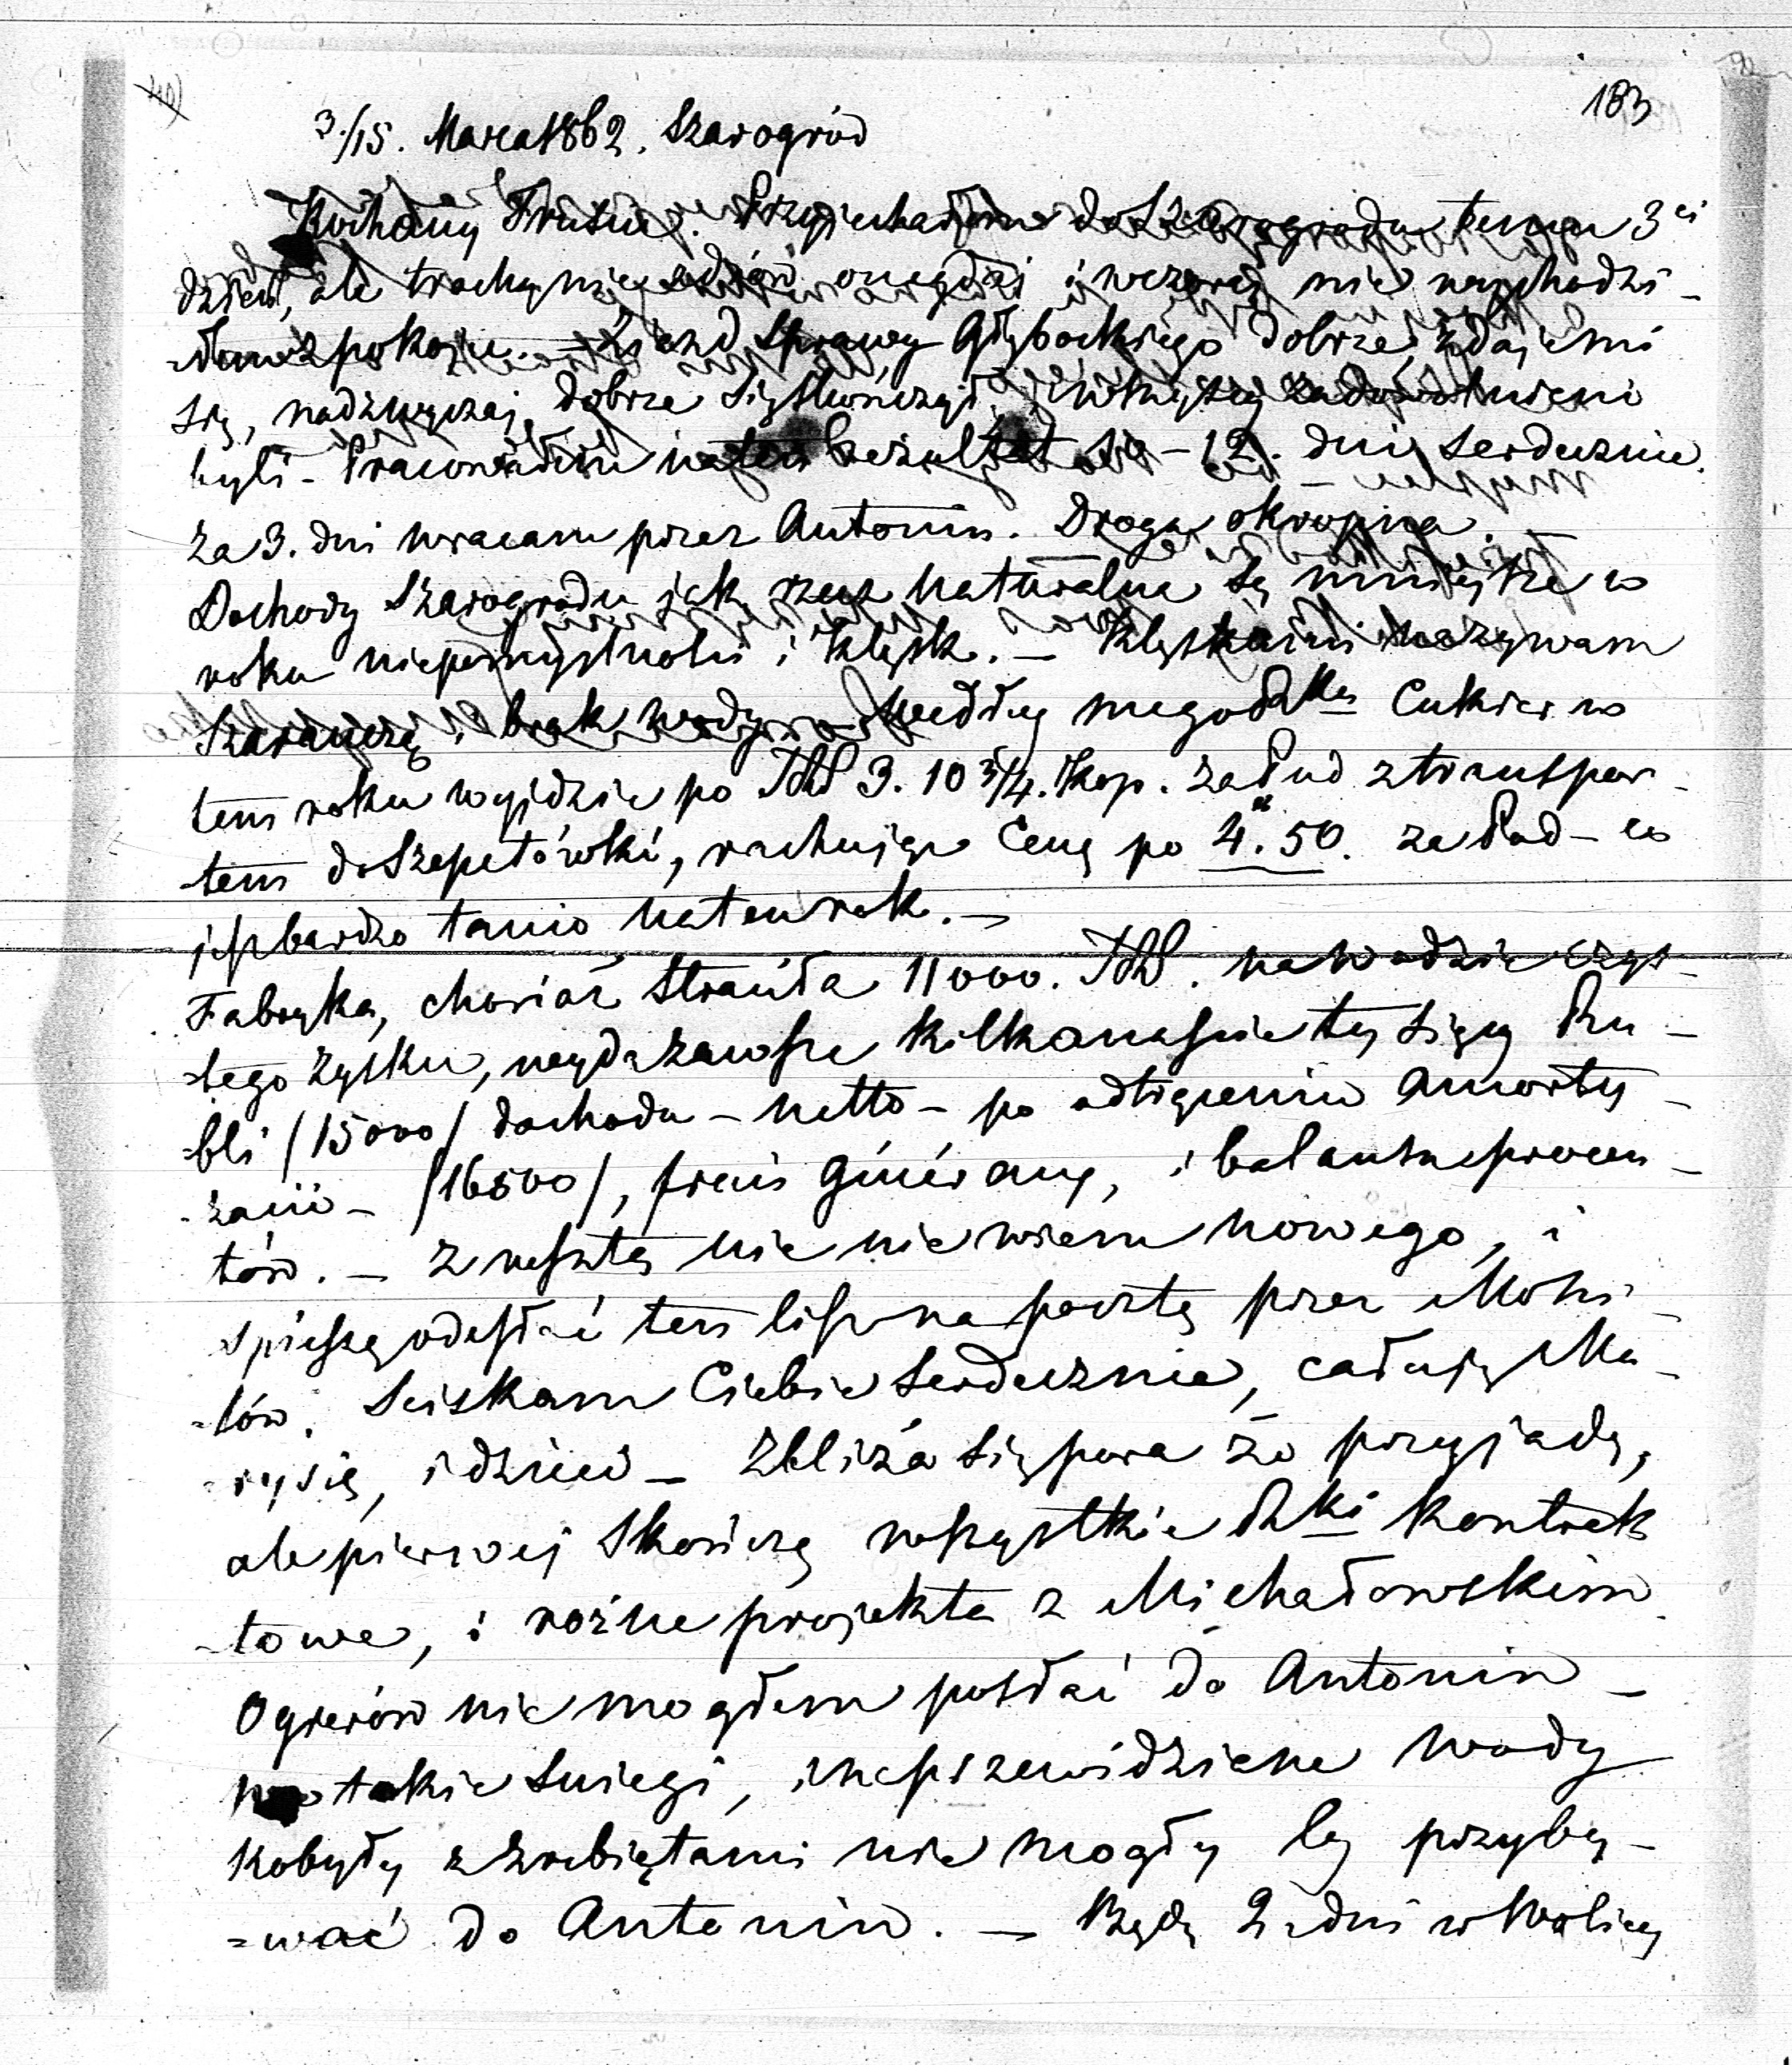 183
3./15. Marca 1862. Szarogród
Kochany Frusiu. Przyjechałem do Szarogrodu temu 3ci
dzień, ale trochę onegdaj i wczoraj nie wychodzi-
-łem z pokoju. — Zjazd Sprawy Głybockiego dobrze, zdaje mi
się, nadzwyczaj dobrze się skończył, i wszyscy zadowolnieni
byli – Pracowałem na ten rezultat 10 – 12. dni serdecznie.
Za 3. dni wracam przez Antonin. Droga okropna.
Dochody Szarogrodu jak rzecz naturalna są mniejsze w
roku niepomyślności i klęsk. — Klęskami nazywam
Szarańczę, i brak wody. Według mego Rku Cukier w
tem roku wyjdzie po RS 3. 10 3/4. Kop. za Pud z transpor-
-tem do Szepetówki, rachując Cenę po 4. 50. za Pud – co
jest bardzo tanio na ten rok. —
Fabryka, chociaż straciła 11000. RS. na wodzie czys-
-tego zysku, wyda zawsze kilkanaście tysięcy Ru-
-bli /15000/ dochodu – netto – po odtrąceniu amorty-
-zacii – /16500/, frais , i balansu procen-
tów. — Zresztą nic nie wiem nowego, i
spieszę odesłać ten list na pocztę przez Mohi-
-lów. Sciskam Ciebie serdecznie, całuję Ma-
-rysię, i dzieci – Zbliża się pora że przyjadę,
ale pierwej skończę wszystkie Rki kontrak-
-towe, i rożne projekta z Michałowskim.
Ogierów nie mogłem posłać do Antonin –
w takie sniegi, i nieprzewidziene wody
Kobyły z zrebiętami nie mogły by przyby-
-wać do Antonin. — Będę 2 dni w Wolicy